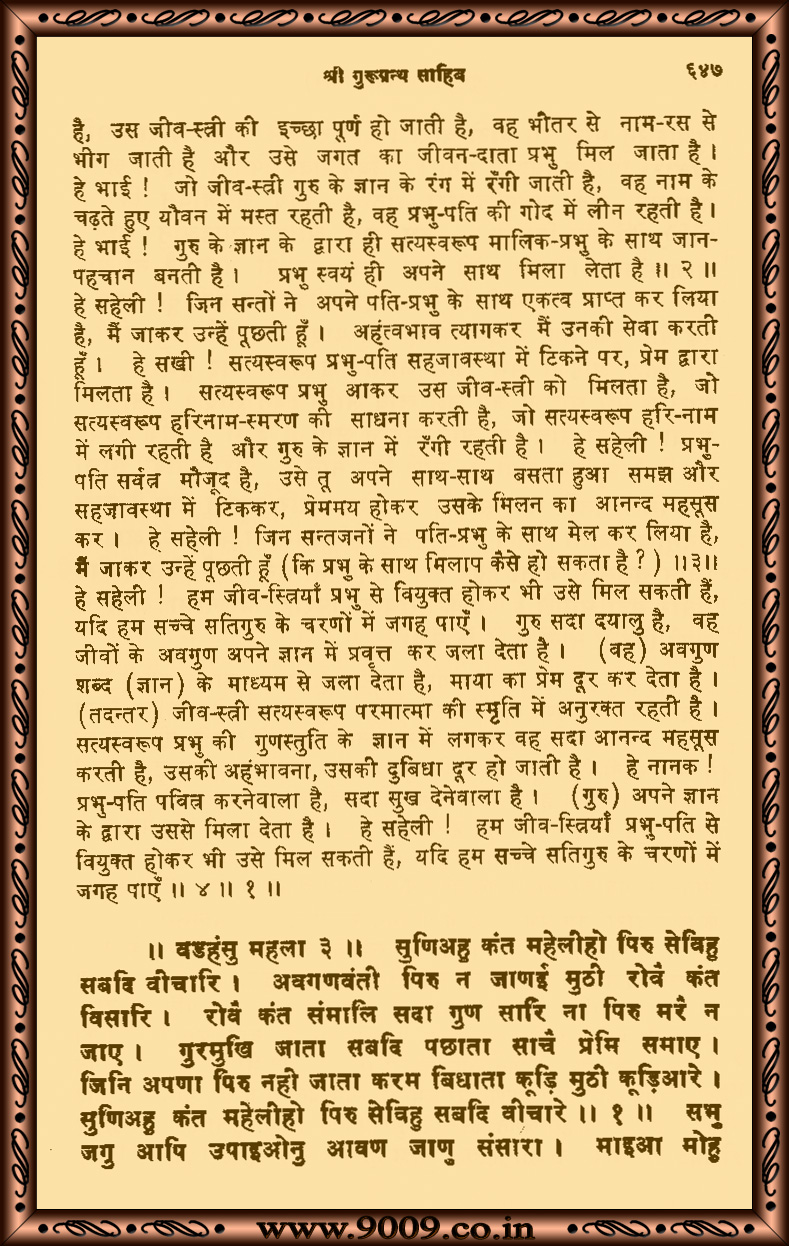 श्री गुरूग्रन्थ साहिब
६४७
है, उस जीव-स्त्री की इच्छा पूर्ण हो जाती है, वह भीतर से नाम-रस से
भीग जाती है और उसे जगत का जीवन-दाता प्रभु मिल जाता है।
हे भाई ! जो जीव-स्त्री गुरु के ज्ञान के रंग में रँगी जाती है, वह नाम के
चढ़ते हुए यौवन में मस्त रहती है, वह प्रभु-पति की गोद में लीन रहती है।
हे भाई ! गुरु के ज्ञान के द्वारा ही सत्यस्वरूप मालिक-प्रभु के साथ जान-
पहचान बनती है। प्रभु स्वयं ही अपने साथ मिला लेता है ॥ २ ॥
हे सहेली ! जिन सन्तों ने अपने पति-प्रभु के साथ एकत्व प्राप्त कर लिया
है, मैं जाकर उन्हें पूछती हूँ। अहंत्वभाव त्यागकर मैं उनकी सेवा करती
हूँ। हे सखी ! सत्यस्वरूप प्रभु-पति सहजावस्था में टिकने पर, प्रेम द्वारा
मिलता है। सत्यस्वरूप प्रभु आकर उस जीव-स्त्री को मिलता है, जो
सत्यस्वरूप हरिनाम-स्मरण की साधना करती है, जो सत्यस्वरूप हरि-नाम
में लगी रहती है और गुरु के ज्ञान में रँगी रहती है। हे सहेली ! प्रभु-
पति सर्वत्र मौजूद है, उसे तू अपने साथ-साथ बसता हुआ समझ और
सहजावस्था में टिककर, प्रेममय होकर उसके मिलन का आनन्द महसूस
कर। हे सहेली ! जिन सन्तजनों ने पति-प्रभु के साथ मेल कर लिया है,
मैं जाकर उन्हें पूछती हूँ (कि प्रभु के साथ मिलाप कैसे हो सकता है ?) ॥३॥
हे सहेली ! हम जीव-स्त्रियाँ प्रभु से वियुक्त होकर भी उसे मिल सकती हैं,
यदि हम सच्चे सतिगुरु के चरणों में जगह पाएँ। गुरु सदा दयालु है, वह
जीवों के अवगुण अपने ज्ञान में प्रवृत्त कर जला देता है। (वह) अवगुण
शब्द (ज्ञान) के माध्यम से जला देता है, माया का प्रेम दूर कर देता है।
(तदन्तर) जीव-स्त्री सत्यस्वरूप परमात्मा की स्मृति में अनुरक्त रहती है।
सत्यस्वरूप प्रभु की गुणस्तुति के ज्ञान में लगकर वह सदा आनन्द महसूस
करती है, उसकी अहंभावना, उसकी दुबिधा दूर हो जाती है। हे नानक !
प्रभु-पति पवित्र करनेवाला है, सदा सुख देनेवाला है। (गुरु) अपने ज्ञान
के द्वारा उससे मिला देता है। हे सहेली ! हम जीव-स्त्रियाँ प्रभु-पति से
वियुक्त होकर भी उसे मिल सकती हैं, यदि हम सच्चे सतिगुरु के चरणों में
जगह पाएँ ॥ ४ ॥ १ ॥
॥ वडहंसु महला ३ ॥ सुणिअहु कंत महेलीहो पिरु सेविहु
सबदि वीचारि। अवगणवंती पिरु न जाणई मुठी रोवै कंत
विसारि। रोवै कंत संमालि सदा गुण सारि ना पिरु मरै न
जाए। गुरमुखि जाता सबदि पछाता साचै प्रेमि समाए।
जिनि अपणा पिरु नही जाता करम बिधाता कूड़ि मुठी कूड़िआरे।
सुणिअहु कंत महेलीहो पिरु सेविहु सबदि वीचारे ॥ १ ॥ सभु
जगु आपि उपाइओनु आवण जाणु संसारा। माइआ मोहु
www.9009.co.in